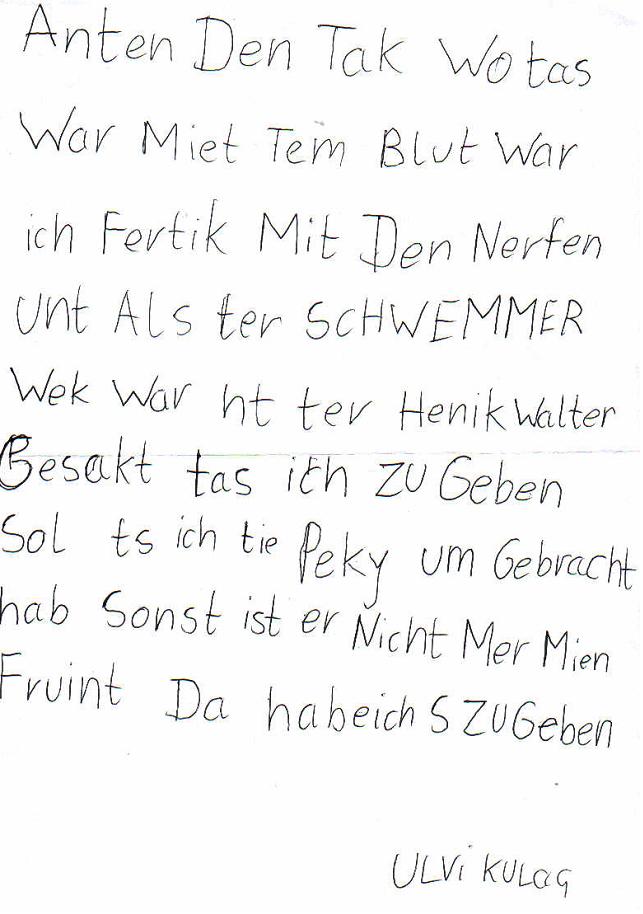 Anten Den Tak Wo tas
War Miet Tem Blut War
ich Fertik Mit Den Nerfen
Unt Als ter SCHWEMMER
Wek War ht ter Henik Walter
Besakt tas ich ZU Geben
Sol ts ich tie Peky um Gebracht
hab Sonst ist er Nicht Mer Mien
Fruint Da habeich S ZUGeben
ULVi KULaG